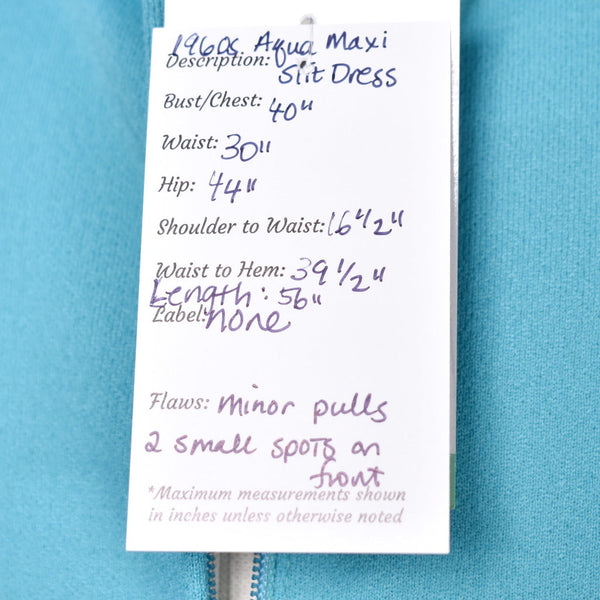 1960s Aqua Maxi
Description: Slit Dress
Bust/Chest: 40"
Waist: 30"
Hip: 44"
Shoulder to Waist: 16 1/2"
Waist to Hem: 39 1/2"
Length: 56"
Label: none
Flaws: minor pulls
2 small spots on
front
*Maximum measurements shown
in inches unless otherwise noted